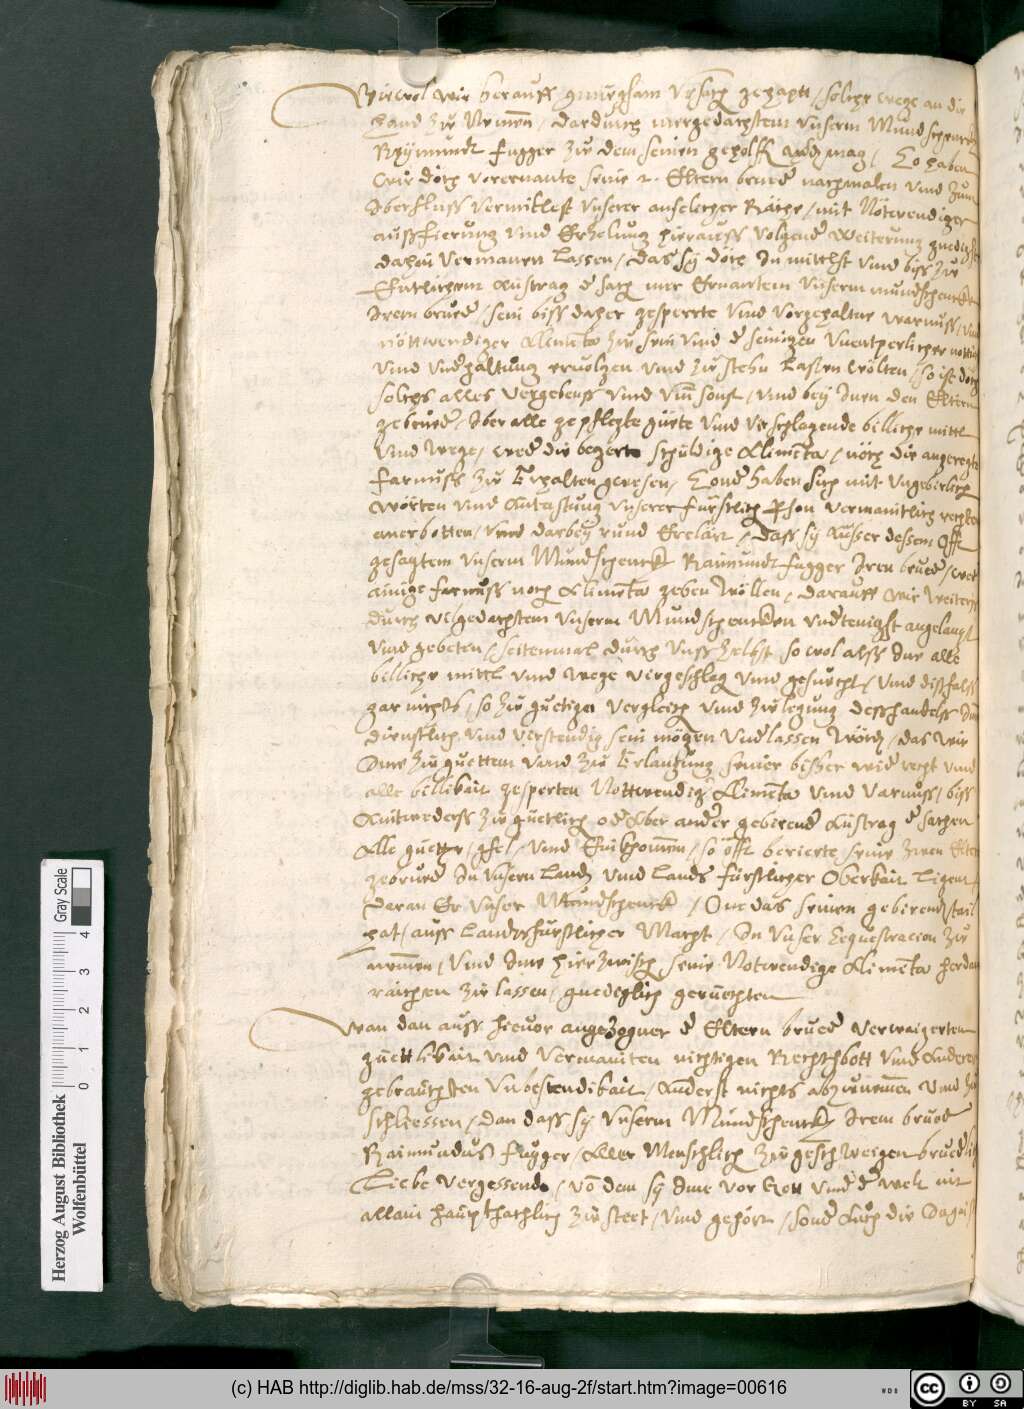 Wiewol wir herauss gnuegsam Vrsach gehapt, solche wege an die
hand zu Nemen, dardurch mergedachtem Vnserm Mundschencken
Reymundt Fugger zu dem seinen geholffen mag, So haben
wir doch vorernante seine 2. Eltern brueder nachmalen vnd zum
Vberfluss vermitlest Vnserer ansehlicher Räthe, mit Notwendiger
aussfierung vnd Erholung hierauss volgender Weiterung gnedigst
dahin vermanen lassen, das sy doch In mittlst vnd biss zu
Entlichem Ausstrag der sach mer Ernantem Vnserm mundschencken
Irem brueder, sein biss daher gesperrte vnd vorgehaltne varnuss, vnd
nottwendiger Alimenta zu sein vnd der seinigen Vnentperlicher
vnd vnderhaltung ervolgen vnd zustehn Lassen wolten, so ist doch
solchs alles vergebenss vnd vmb sonst, vnd bey Inen den Eltern
gebrueder, Vber alle gepflegte guete vnd fürschlagende billiche mittl
vnd wege, weder die begerte schuldige Alimenta, noch die angeregte
farnuss zu Erhalten gewesen, Sonder haben sich mit Vngebirlichen
worten vnd Antastung Vnserer fürstlich Person vermaintlich rechten
anerbotten, vnd darbey rund Erclärt, dass sy Ausser dessen Offt
gesagtem Vnserm Mundschenck Raimundt Fugger Iren brueder, weder
ainige farnuss noch Alimenta geben wöllen, Darauff wir weiters
durch Vilgedachtem Vnserm Mundschencken vndtenigist angelangt
vnd gebeten, seitenmal durch Vnss selbst so wol alss Ine alle
billiche mittl vnd wege fürgeschlag vnd gesuecht, vnd dissfalss
gar nichts, so zu guetiger vergleich vnd zulegung desshandelss
dienstlich vnd verstendig sein mögen vnderlassen worden, das wir
Ime zu guettem vnd zu Erlangung seiner bisher wider recht vnd
alle billikait gesperten Nottwendigen Alimenta vnd Varnuss, biss
Aintwederss zu guetlich oder Aber ander gebirender Ausstrag der sachen
Alle guetter, gfel, vnd Einkhomen, so offt berierte seine zwen Eltern
gebrueder In Vnsern Landen vnd Lands fürstlicher Oberkait Ligent,
daran Er Vnser Mundschenck, One das seinen gebirenden tail
hat, auss Landsfürstlicher Macht, In Vnser Sequestracion zu
nemen, vnd Ime hierzwischen seine Notwendige Alimenta herdan
raichen zu lassen, gnedeglich geruechten
Wan dan auss hievor angezogner der Eltern brueder verwaigerten
guettlikait vnd vermainten nichtigen Rechtbott vnd Anderer
gebrauchten Vnbestendikait, Anderst nichts abzunemen vnd zu
schliessen, dan dass sy Vnserm Mundschenck Irem brueder
Raimundus Fugger, Aller Menschlich zugeschweigen bruederlicher
Liebe vergessende, von dem sy Ime vor Gott vnd der welt nit
allain haupthachlich zusteet, vnd gehört, sonder Auch die
Herzog August Bibliothek
Wolfenbüttel
0 1 2 3 4
Gray Scale
(c) HAB http://diglib.hab.de/mss/32-16-aug-2f/start.htm?image=00616
WDB
cc BY SA